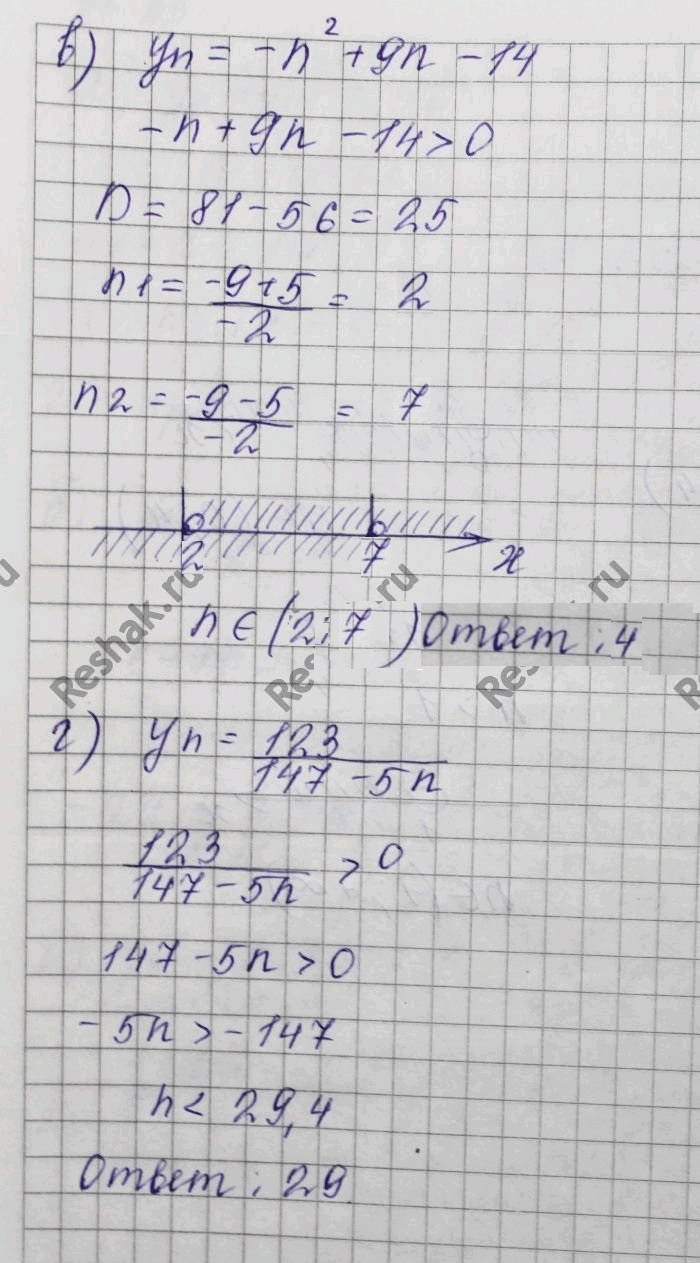 в) yn = -n² + 9n - 14
-n + 9n - 14 > 0
D = 81 - 56 = 25
n1 = (-9+5)/(-2) = 2
n2 = (-9-5)/(-2) = 7
2 7 x
n ∈ (2; 7) Ответ: 4
Reshak.ru
г) yn = 123/(147 - 5n)
123/(147 - 5n) > 0
147 - 5n > 0
-5n > -147
n < 29,4
Ответ: 29